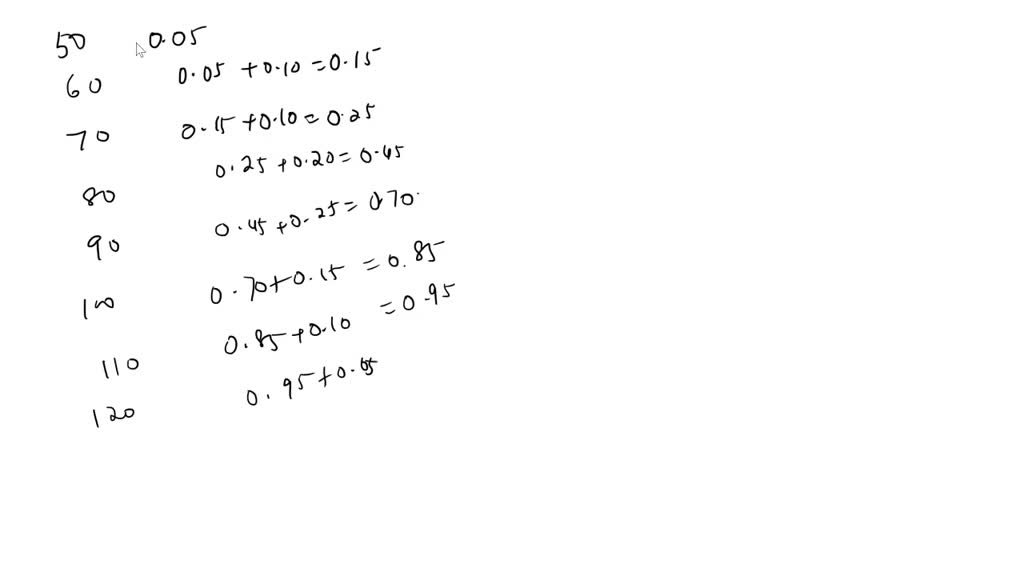 50 0.05
60 0.05 + 0.10 = 0.15
70 0.15 + 0.10 = 0.25
80 0.25 + 0.20 = 0.45
90 0.45 + 0.25 = 0.70
100 0.70 + 0.15 = 0.85
110 0.85 + 0.10 = 0.95
120 0.95 + 0.05